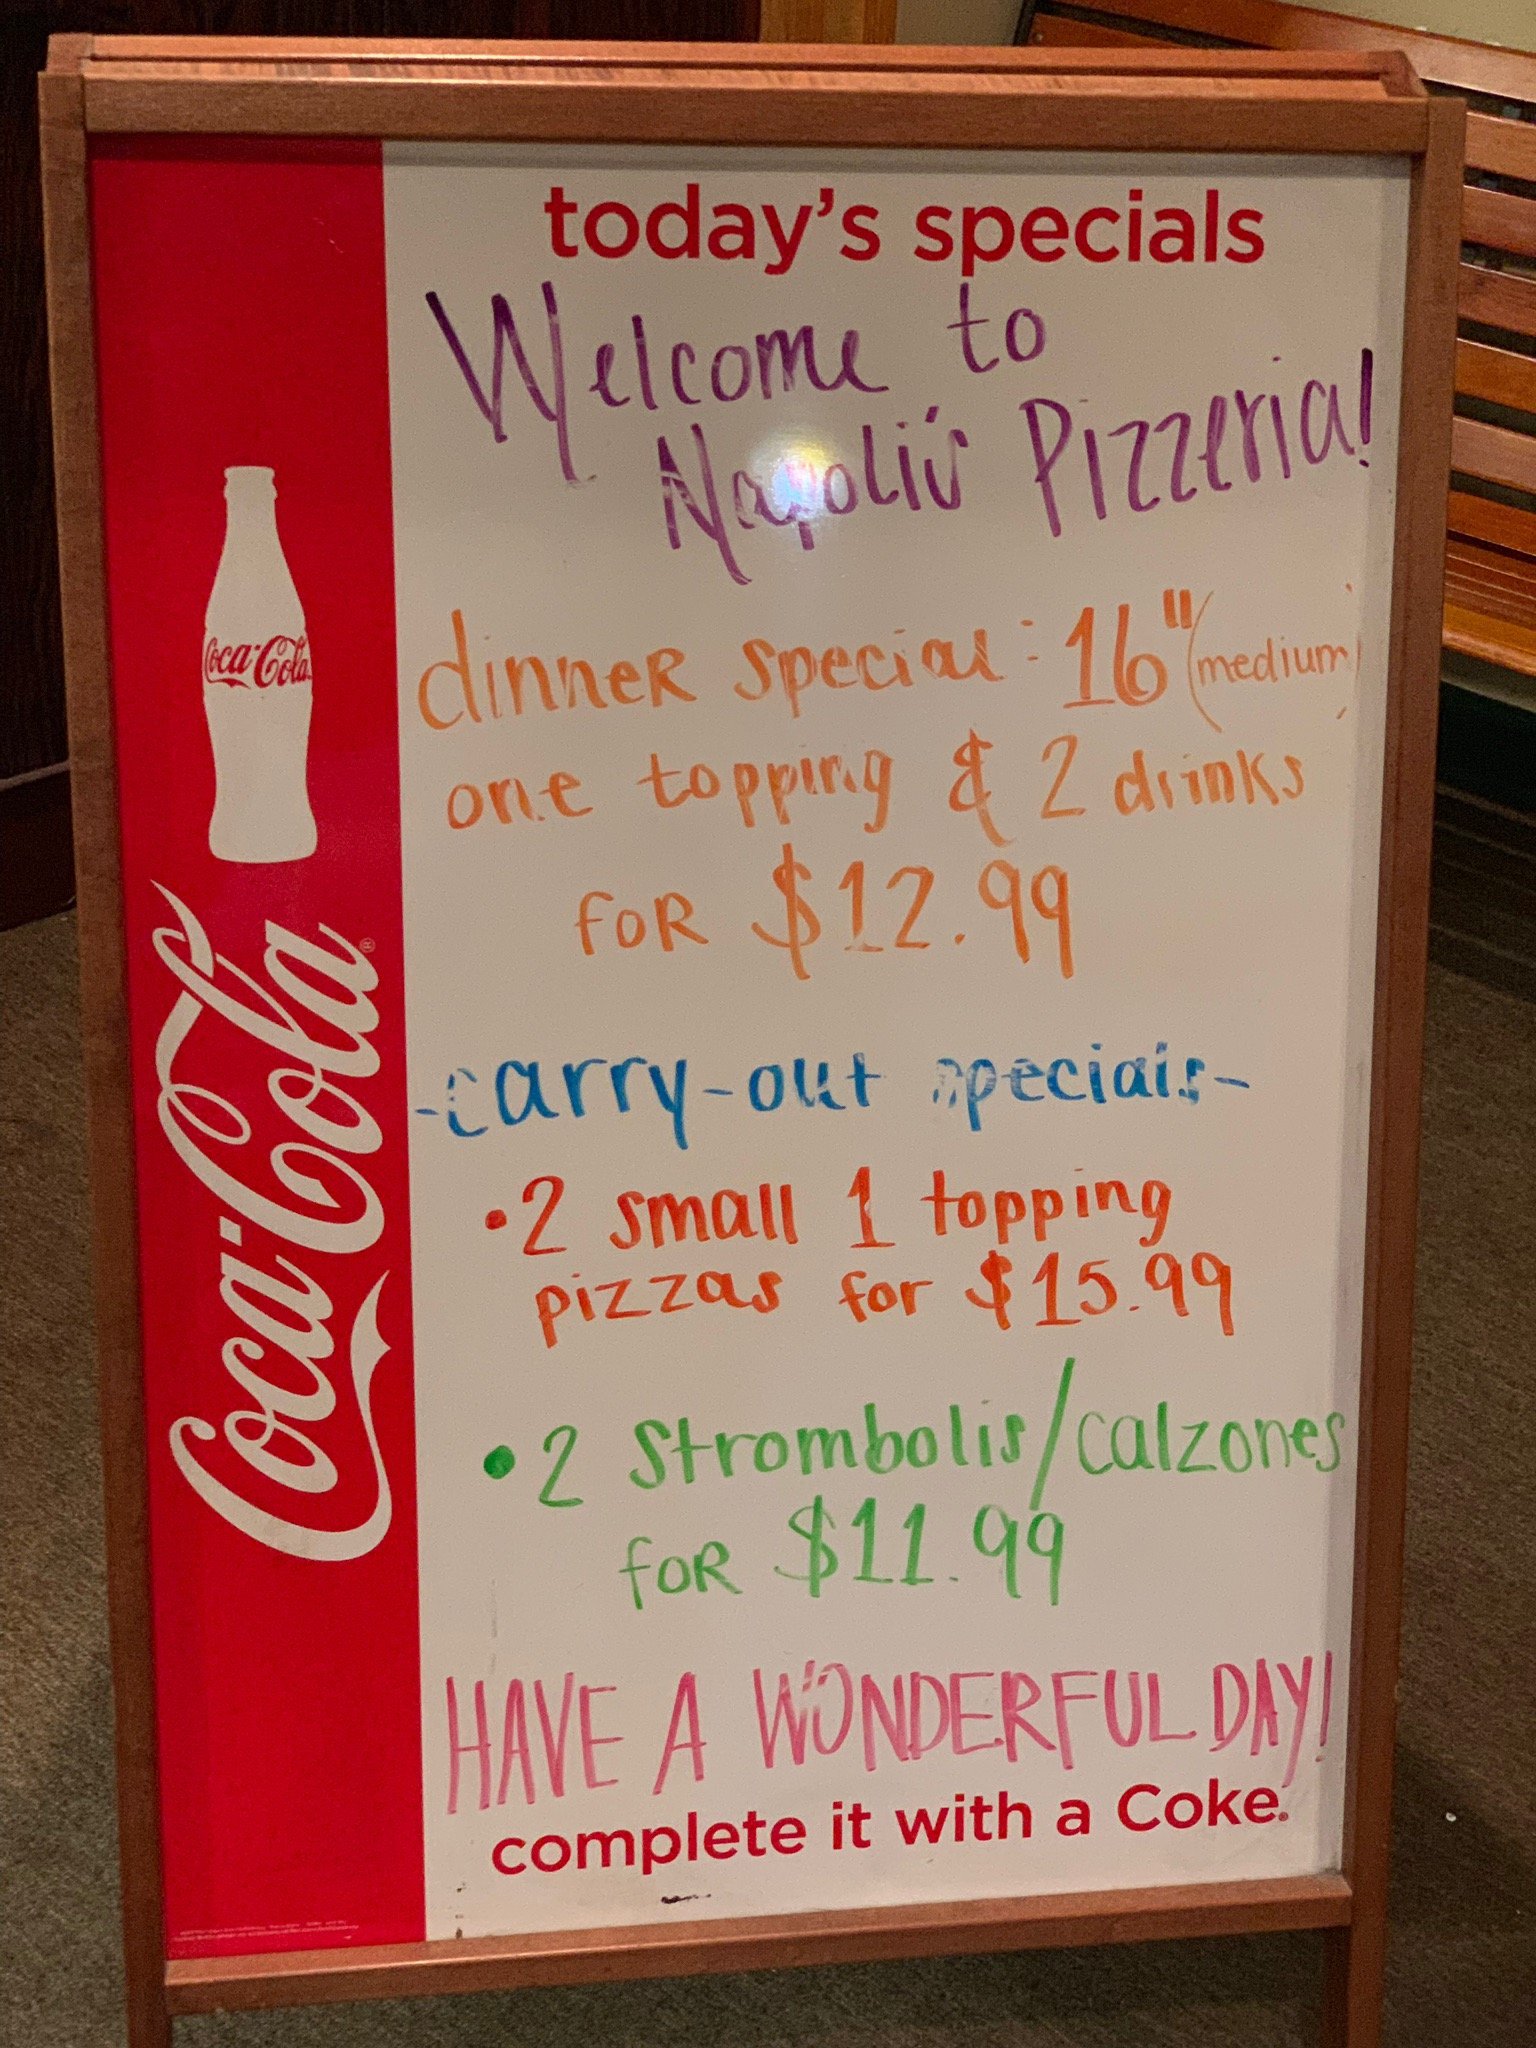 today's specials
Welcome to
Napoli's Pizzeria!
dinner special: 16" (medium)
one topping & 2 drinks
for $12.99
-carry-out specials-
• 2 small 1 topping
pizzas for $15.99
• 2 strombolis/calzones
for $11.99
HAVE A WONDERFUL DAY!
complete it with a Coke.
Coca-Cola
Coca-Cola®